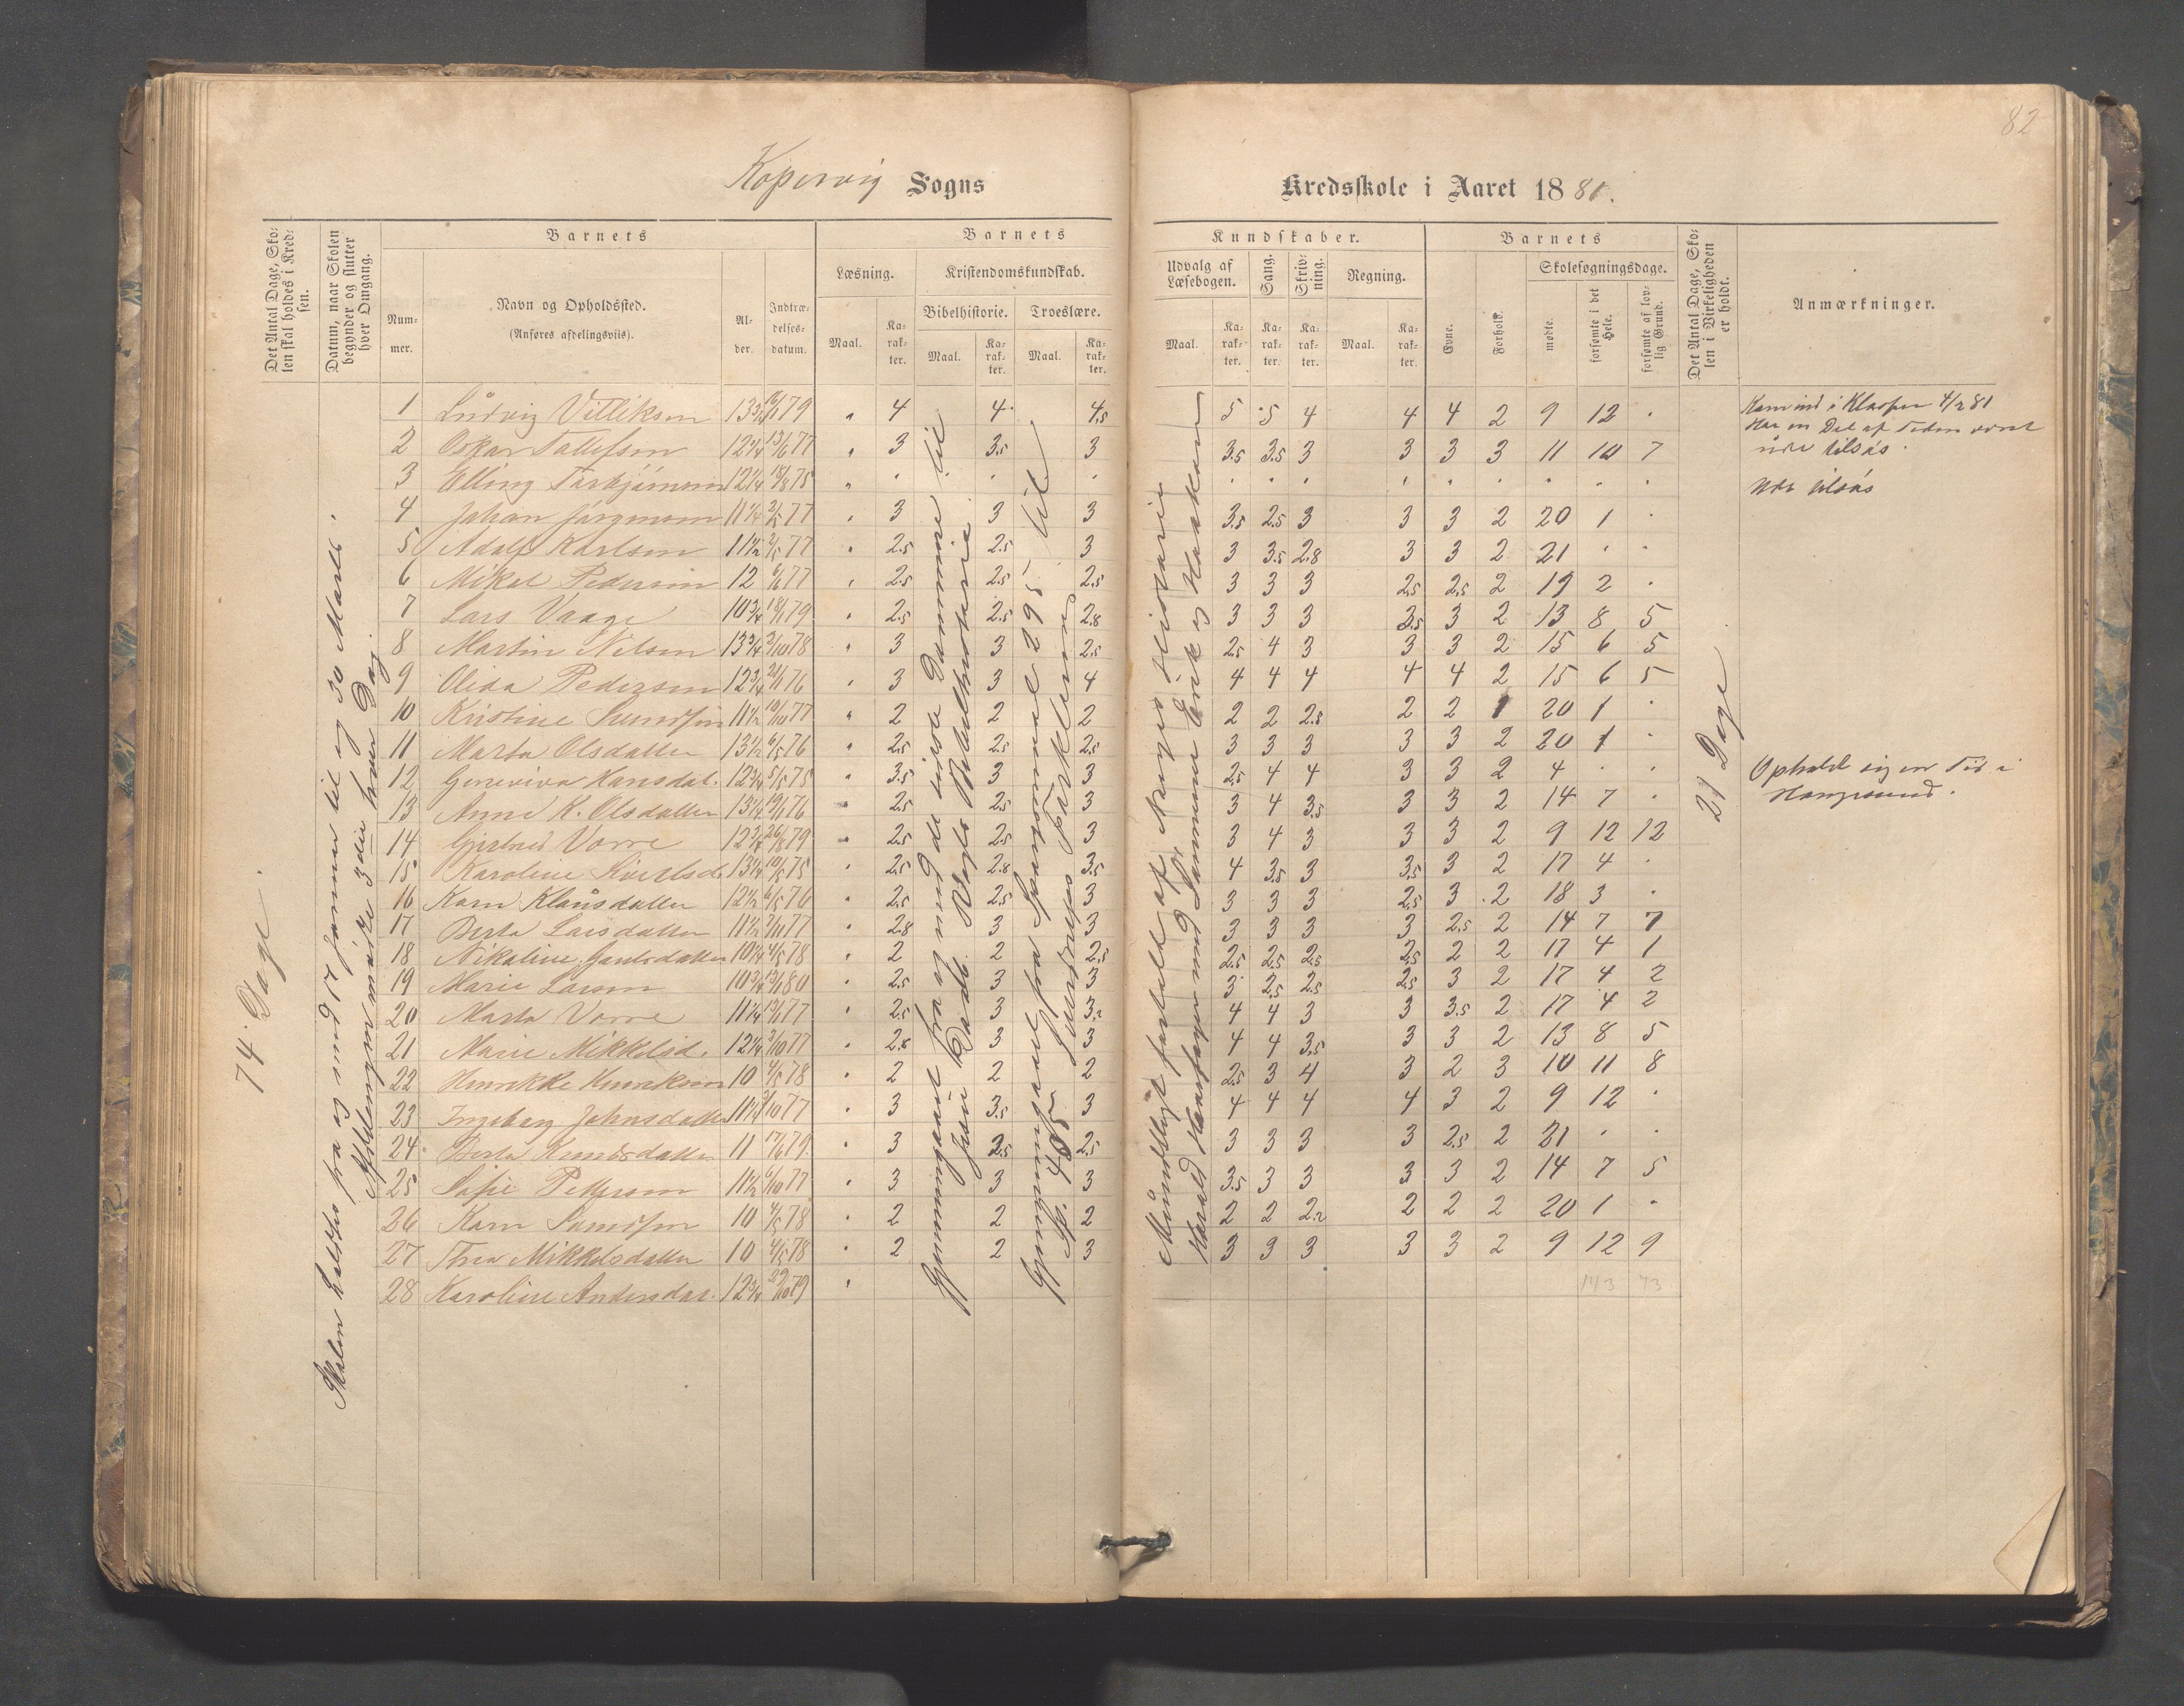 82
Kopervig Sogns
Kredsskole i Aaret 1881.
Det Antal Dage, Skolen skal holdes i Kredsen.
Datum, naar Skolen begynder og slutter hver Omgang.
Barnets
Nummer.
Navn og Opholdssted.
(Anføres afdelingsviis).
Alder.
Indtrædelsesdatum.
Barnets
Læsning.
Maal.
Karakter.
Kristendomskundskab.
Bibelhistorie.
Maal.
Karakter.
Troeslære.
Maal.
Karakter.
Kundskaber.
Udvalg af Læsebogen.
Maal.
Karakter.
Sang.
Karakter.
Skrivning.
Karakter.
Regning.
Maal.
Karakter.
Barnets
Evne.
Forhold.
Skolesøgningsdage.
mødte.
forsømte i det Hele.
forsømte af lovlig Grund.
Det Antal Dage, Skolen i Virkeligheden er holdt.
Anmærkninger.
74 Dage.
Skolen holdtes fra og med 17 Januar til og 30 Marts.
Afdelingen mødte 3die hver Dag.
21 Dage
1 Ludvig Villiksen 13 3/4 79 4 4 4,5 5 5 4 4 4 2 9 12 . Kom ind i Klassen 4/2 81
2 Oskar Tollefsen 12 1/4 13/6 77 3 3.5 3 3.5 3.5 3 3 3 3 11 10 7 Har en Del af Tiden været ude tilsøs.
3 Elling Torbjørnsen 12 1/4 18/8 75 . . . . . . . . . . . . Ude tilsøs
4 Johan Jørgensen 11 1/4 2/5 77 3 3 3 3.5 2.5 3 3 3 2 20 1
5 Adolf Karlsen 11 1/2 2/5 77 2.5 2.5 3 3 3.5 2.8 3 3 2 21 . .
6 Mikal Pedersen 12 6/6 77 2.5 2.5 2,5 3 3 3 2,5 2,5 2 19 2 .
7 Lars Vaage 10 3/4 18/1 79 2.5 2.5 2.8 3 3 3 2.5 3 2 13 8 5
8 Martin Nilsen 13 3/4 3/10 78 3 3 2.5 2.5 4 3 3 3 2 15 6 5
9 Olida Pedersen 12 3/4 21/1 76 3 3 4 4 4 4 4 4 2 15 6 5
10 Kristine 11 1/2 10/10 77 2 2 2 2 2 2.8 2 2 1 20 1 .
11 Marta Olsdatter 13 1/2 6/5 76 2.5 2.5 2.5 3 3 3 3 3 2 20 1 .
12 Geneviva Hansdat. 12 3/4 5/5 75 3.5 3 3 2.5 4 4 3 3 2 4 . . Opholdt sig en Tid i Haugesund.
13 Anne K. Olsdatter 13 1/4 19/1 76 2.5 2.5 3 3 4 3.5 3 3 2 14 7 .
14 Gjertrud Vorre 12 3/4 26/8 79 2.5 2.5 3 3 4 3 3 3 2 9 12 12
15 Karoline Sivertsd. 13 1/4 10/5 75 2.5 2.8 3.5 4 3.5 3 3.5 3 2 17 4 .
16 Karn Klausdatter 12 1/2 6/5 76 2.5 2.5 3 3 3 3 2.5 3 2 18 3 .
17 Berta Larsdatter 11 1/2 2/11 77 2.8 3 3 3 3 3 3 2.5 2 14 7 7
18 Nikoline 10 1/4 4/5 78 2 2 2.5 2.5 2.5 2.5 2.5 2 2 17 4 1
19 Marie Larsen 10 3/4 13/1 80 2.5 3 3 3 2.5 2.5 2.5 3 2 17 4 2
20 Marta Vorre 11 1/4 77 2.5 3 3,2 4 4 3 3 3.5 2 17 4 2
21 Marie Mikkelsd. 12 1/4 3/10 77 2.8 3 3 4 4 3.5 3 3 2 13 8 5
22 Henrikke Henriksen 10 4/5 78 2 2 2 2.5 3 4 3 2 3 10 11 8
23 Ingeborg Johnsdatter 11 1/4 3/10 77 3 3.5 3 4 4 4 4 3 2 9 12 .
24 Berta Knutsdatter 11 17/6 79 3 2.5 2.5 3 3 3 3 2.5 2 21 . .
25 Sofie Pettersen 11 1/2 6/10 77 3 3 3 3.5 3 3 3 3 2 14 7 5
26 Karn 10 4/5 78 2 2 2 2 2 2.2 2 2 2 20 1 .
27 Thea Mikkelsdatter 10 4/5 78 2 2 3 3 3 3 3 3 2 9 12 9
28 Karoline Andersdat. 12 3/4 29/10 79
Gjennemgaaet fra og med de vise Dommere til
Jesu Vogts Bibelhistorie
Gjennemgaaet fra Spørgsmaal 295 til
Sp. 405 Sverdrups Forklaring
Mundtligt fortalt af Norges Historie
Harald Haarfager med Sønnerne Erik og Haakon
143 73